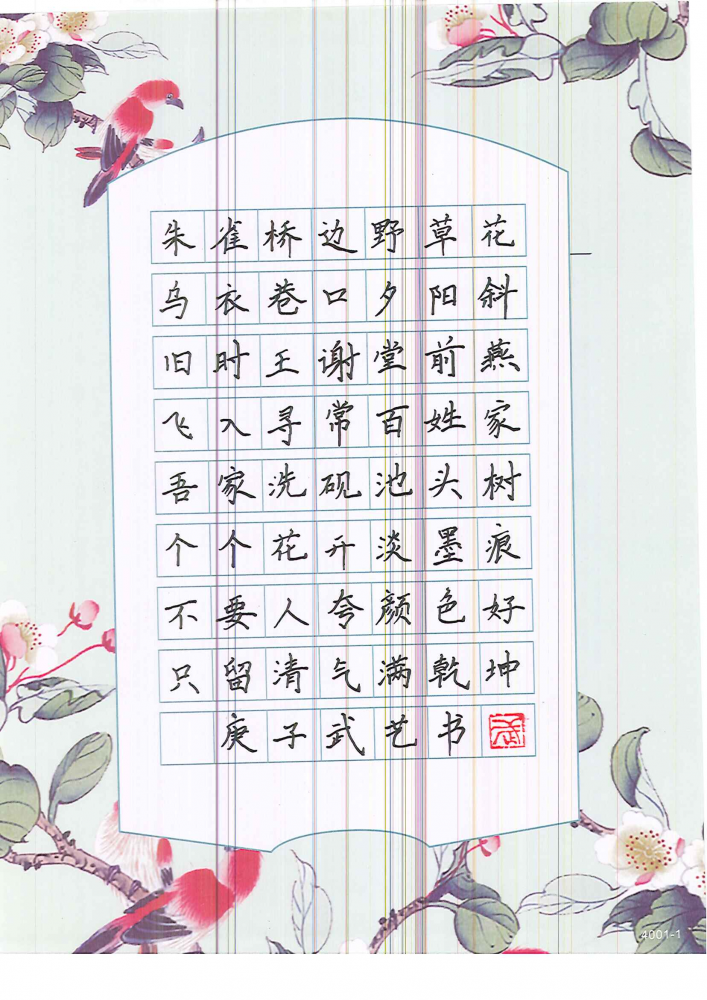 朱雀桥边野草花
乌衣巷口夕阳斜
旧时王谢堂前燕
飞入寻常百姓家
吾家洗砚池头树
个个花开淡墨痕
不要人夸颜色好
只留清气满乾坤
庚子武艺书
武
4001-1